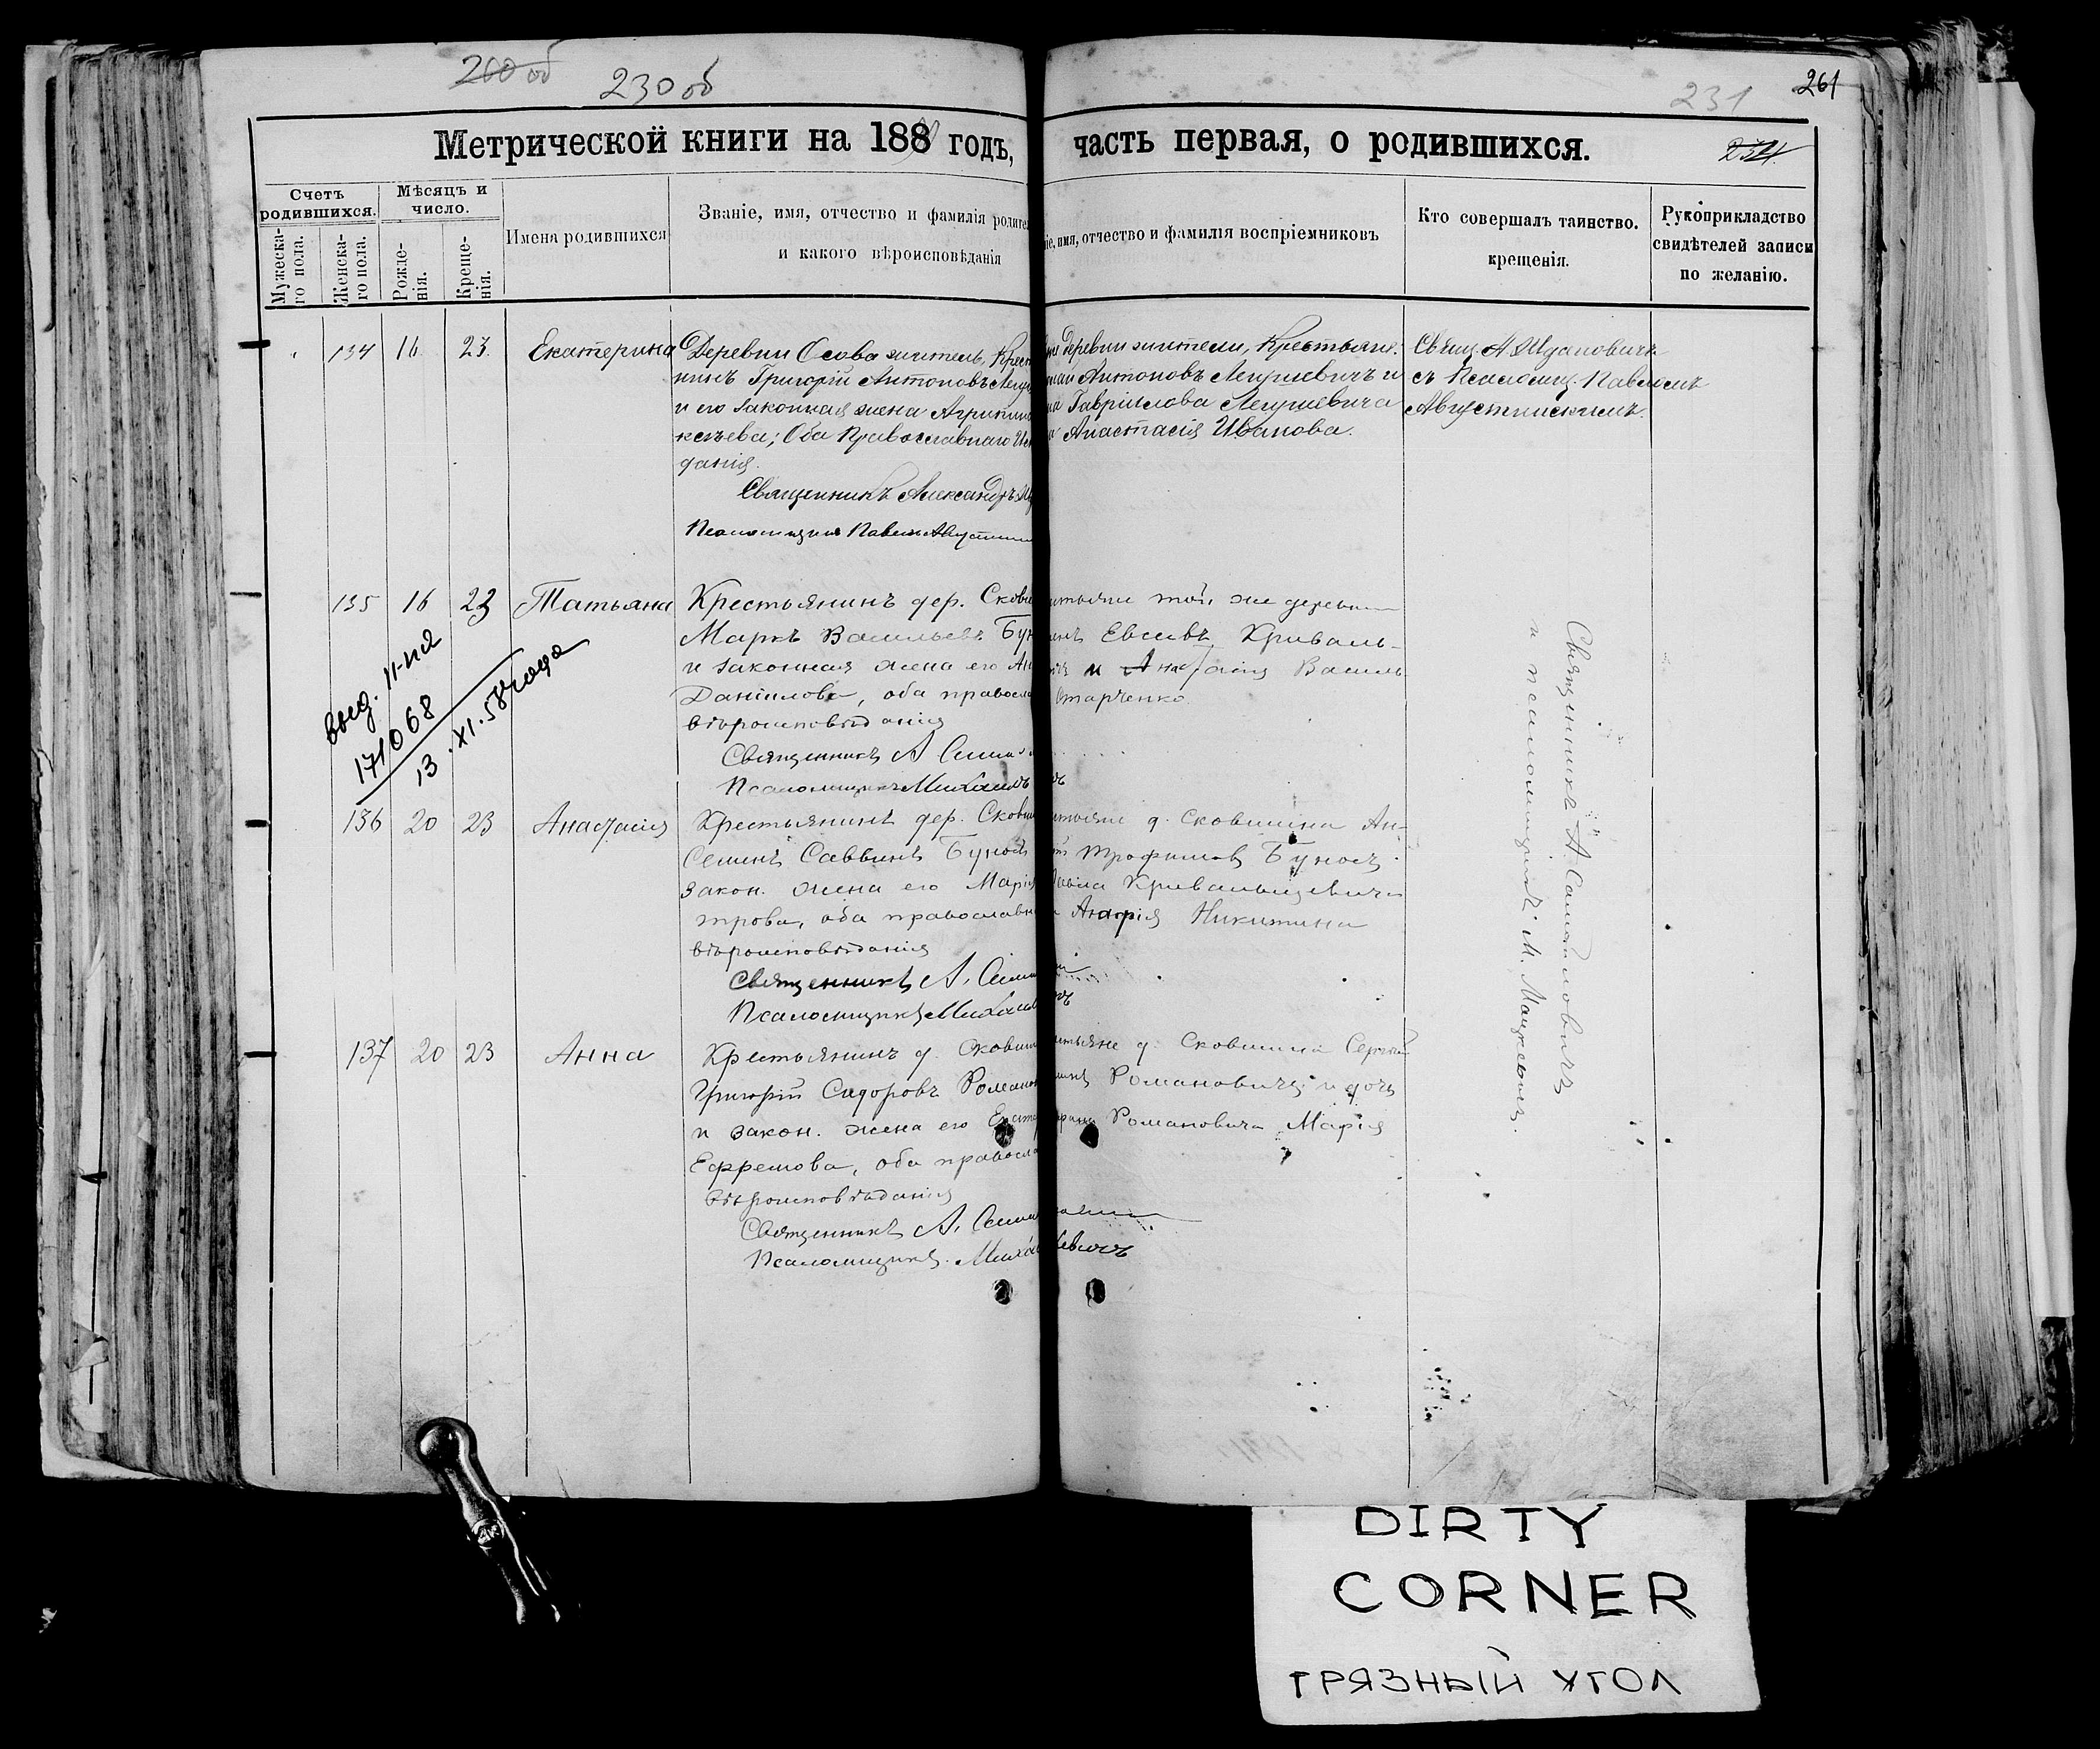 260 об
230 об
231
261
Метрической книги на 188 годъ, часть первая, о родившихся.
234
Счетъ родившихся.
Мѣсяцъ и число.
Мужеска-го пола.
Женска-го пола.
Рожде-нія.
Креще-нія.
Имена родившихся
Званіе, имя, отчество и фамилія родите
и какого вѣроисповѣданія
іе, имя, отчество и фамилія воспріемниковъ
Кто совершалъ таинство.
крещенія.
Рукоприкладство
свидѣтелей записи
по желанію.
134 16 23 Екатерина
Деревни Осова житель, Крест
нинъ Григорій Антоновъ
и его законная жена Агрипин
Оба Православнаго Ис
данія.
Священникъ Александръ
Псаломщикъ Павелъ Августин
деревни жители, Крестьяне:
Антоновъ Лецкевичъ и
Гавріилова Лецкевича
Анастасія Иванова.
Свящ. А. Ждановичъ
съ Псаломщ. Павломъ
Августинскимъ.
135 16 23 Татьяна
Крестьянинъ дер. Скови
Маркъ Васильевъ Бун
и законная жена его Ан
Даніилова, оба правосла
вѣроисповѣданія
Священникъ А
Псаломщикъ
тьяне той же деревни
Евсевъ Криваль-
и Анастасія Василь
Старченко
выд. II-на
171068
13.XI.58 года
136 20 23 Анастасія
Крестьянинъ дер. Скови
Семенъ Саввинъ Бунос
закон. жена его Марія
трова, оба православн
вѣроисповѣданія
Священникъ А.
Псаломщикъ
тьяне д. Сковшина Ан-
Трофимов Буносъ
Кривальцевича
Никитина
137 20 23 Анна
Крестьянинъ д. Сковши
Григорій Сидоровъ Роман
и закон. жена его Екате
Ефремова, оба правосла
вѣроисповѣданія
Священникъ А.
Псаломщикъ
тьяне д. Сковшина Сергѣй
Романовичъ и дочь
Романовича Марія
Священникъ А. Самойловичъ
и псаломщикъ М. Мацкевичъ.
DIRTY
CORNER
ГРЯЗНЫЙ УГОЛ